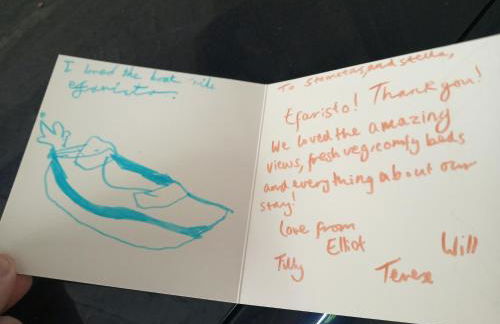 I loved the boat ride
efaristo.
To Stamatas, and Stella,
Efaristo! Thank you!
We loved the amazing
views, fresh veg, comfy beds
and everything about our
stay!
Love from
Elliot
Will
Tilly
Terese